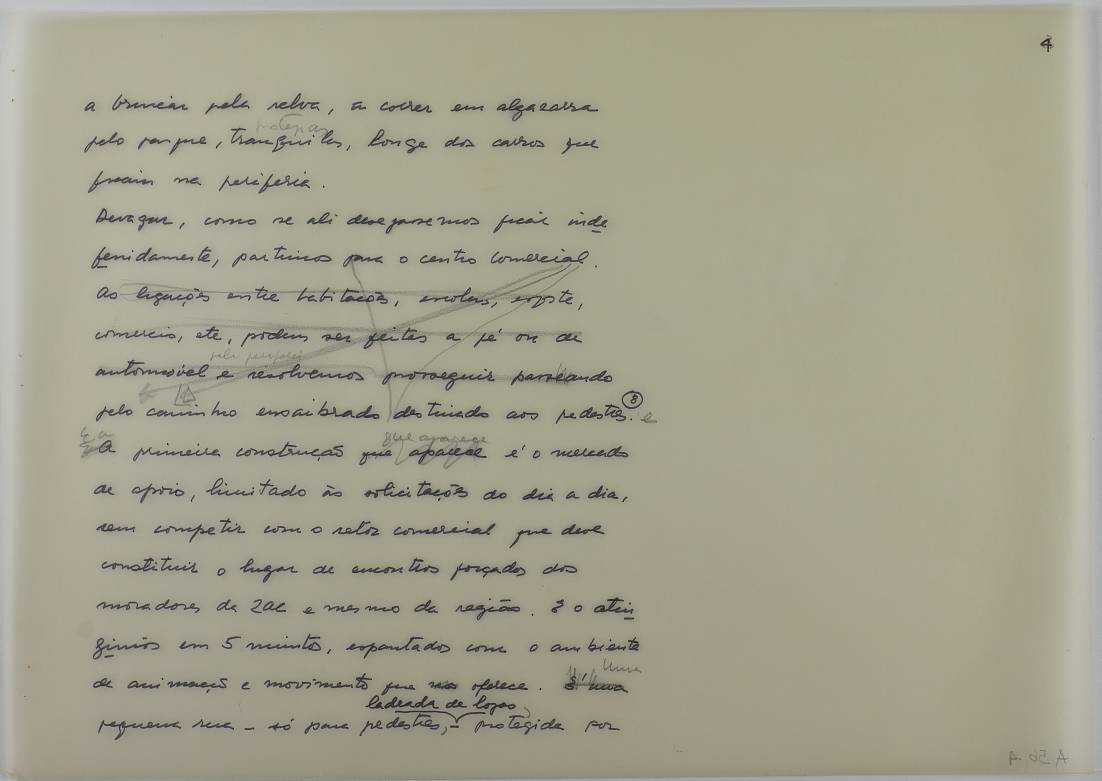 4
a brincar pela relva, a correr em algazarra
pelo parque, tranquilos, longe dos carros que
freiam na periferia.
Devagar, como se ali desejassemos ficar inde
fenidamente, partimos para o centro comercial.
As ligações entre habitações, escolas, esporte,
comercio, etc, podem ser feitas a pé ou de
automovel e resolvemos prosseguir passeando
pelo caminho ensaibrado destinado aos pedestres. e
3
E a
que aparece
A primeira construção que aparece é o mercado
de apoio, limitado às solicitações do dia a dia,
sem competir com o setor comercial que deve
constituir o lugar de encontros forçados dos
moradores da ZAC e mesmo da região. E o atin
gimos em 5 minutos, espantados com o ambiente
Uma
de animação e movimento que nos oferece. É uma
ladeada de lojas
pequena rua - só para pedestres, - protegida por